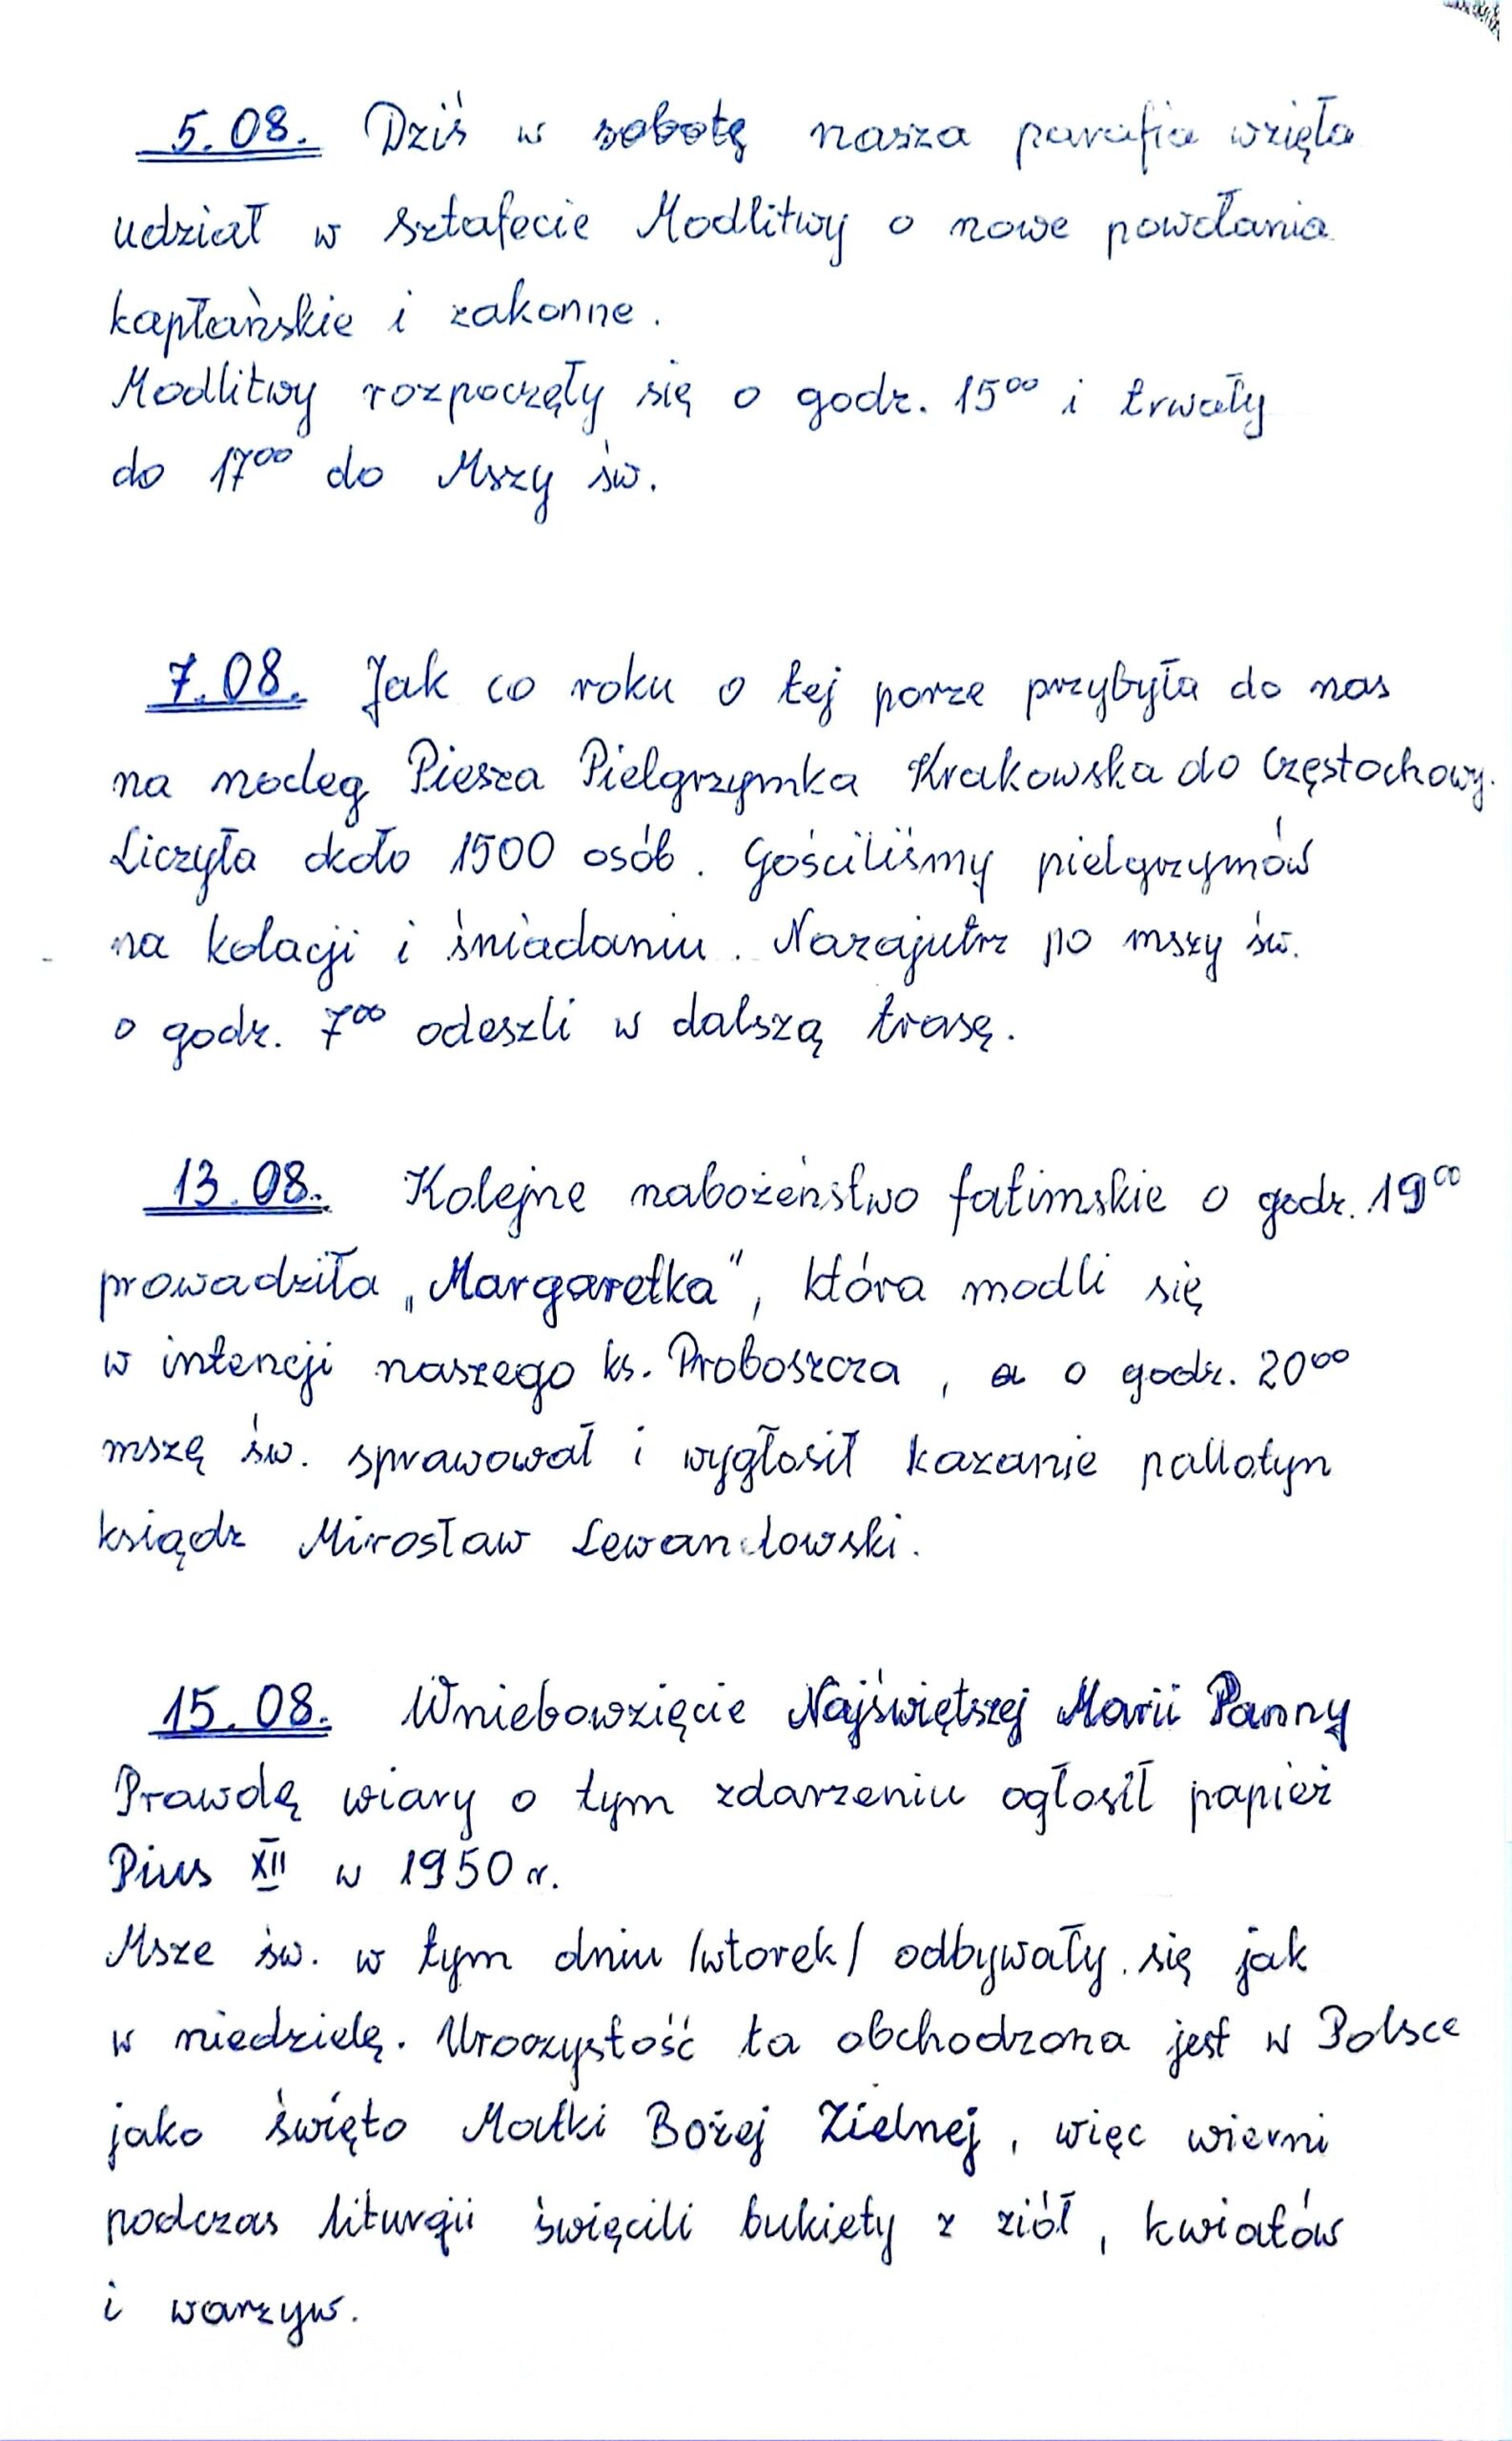 5.08. Dziś w sobotę nasza parafia wzięła
udział w sztafecie Modlitwy o nowe powołania
kapłańskie i zakonne.
Modlitwy rozpoczęły się o godz. 15⁰⁰ i trwały
do 17⁰⁰ do Mszy św.
7.08. Jak co roku o tej porze przybyła do nas
na nocleg Piesza Pielgrzymka Krakowska do Częstochowy.
Liczyła około 1500 osób. Gościliśmy pielgrzymów
na kolacji i śniadaniu. Nazajutrz po mszy św.
o godz. 7⁰⁰ odeszli w dalszą trasę.
13.08. Kolejne nabożeństwo fatimskie o godz. 19⁰⁰
prowadziła „Margaretka", która modli się
w intencji naszego ks. Proboszcza, a o godz. 20⁰⁰
mszę św. sprawował i wygłosił kazanie pallotyn
ksiądz Mirosław Lewandowski.
15.08. Wniebowzięcie Najświętszej Marii Panny
Prawdę wiary o tym zdarzeniu ogłosił papież
Pius XII w 1950 r.
Msze św. w tym dniu /wtorek/ odbywały się jak
w niedzielę. Uroczystość ta obchodzona jest w Polsce
jako święto Matki Bożej Zielnej, więc wierni
podczas liturgii święcili bukiety z ziół, kwiatów
i warzyw.